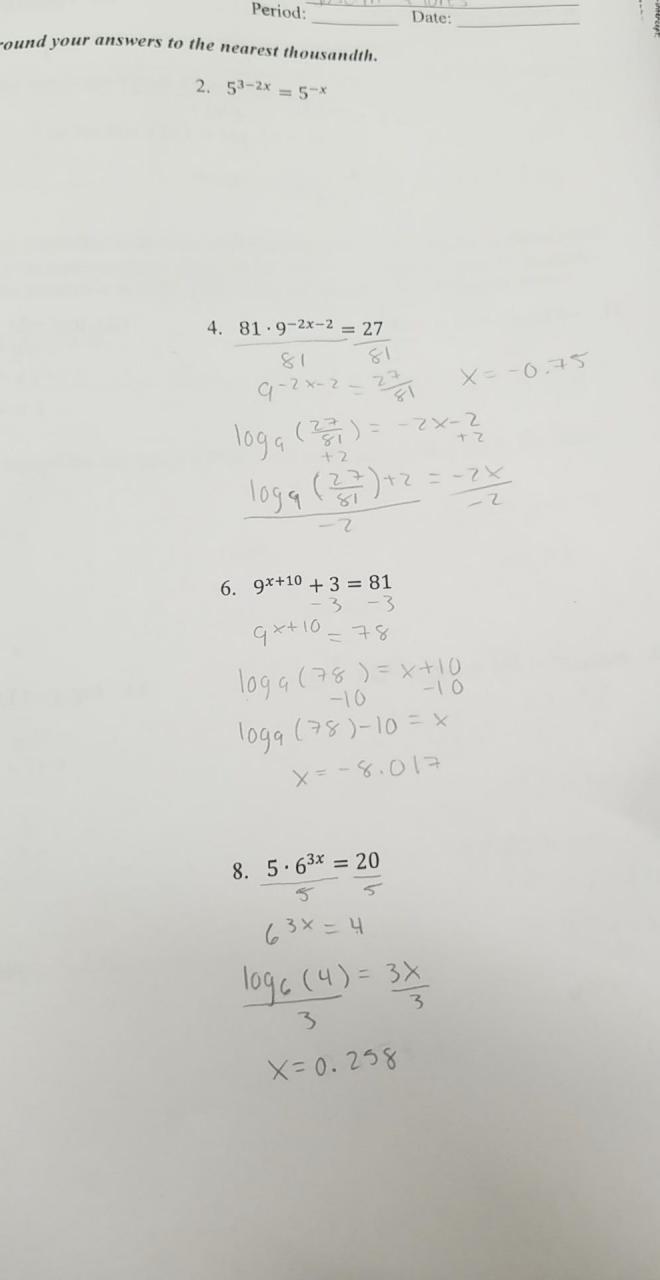 Period: Date:
round your answers to the nearest thousandth.
2. 5^{3-2x} = 5^{-x}
4. 81 · 9^{-2x-2} = 27
81 81
9^{-2x-2} = 27/81 x = -0.75
log₉ (27/81) = -2x-2
+2 +2
log₉ (27/81) +2 = -2x
-2 -2
6. 9^{x+10} + 3 = 81
-3 -3
9^{x+10} = 78
log₉ (78) = x+10
-10 -10
log₉ (78) -10 = x
x = -8.017
8. 5 · 6^{3x} = 20
5 5
6^{3x} = 4
log₆ (4) = 3x
3 3
x = 0.258